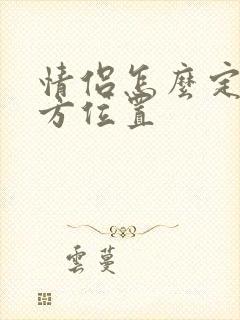 情侣怎麼定
方位置
雲蔓